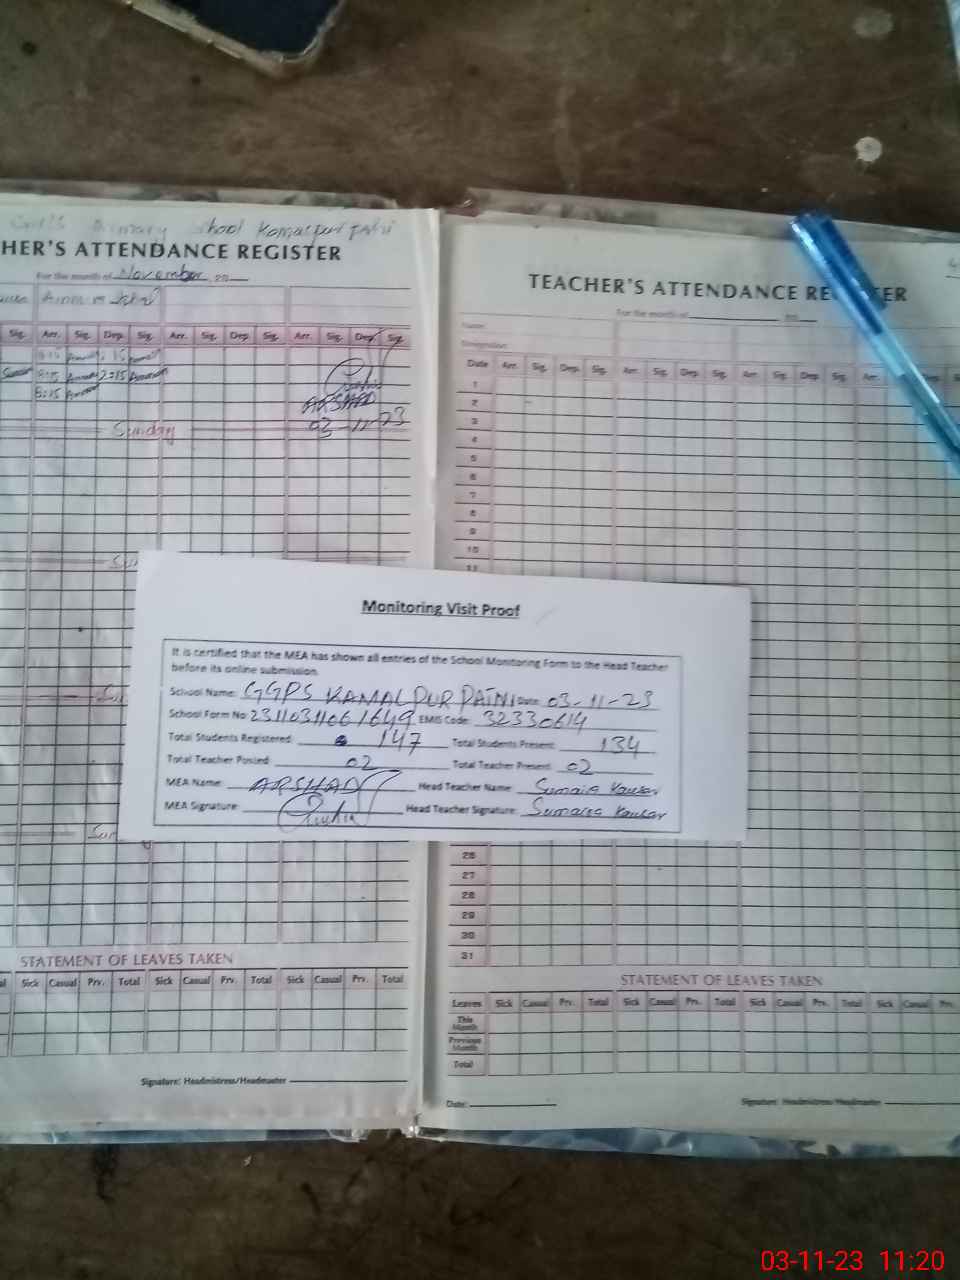 Girls Primary School Kamalpur
HER'S ATTENDANCE REGISTER
For the month of November, 20
Sig. Arr. Sig. Dep. Sig. Arr. Sig. Dep. Sig. Arr. Sig. Dep. Sig.
8:15 2:15
8:15
ARSHAD
03-11-23
Sunday
STATEMENT OF LEAVES TAKEN
Sick Casual Prv. Total Sick Casual Prv. Total Sick Casual Prv. Total
Signature: Headmistress/Headmaster
TEACHER'S ATTENDANCE REGISTER
For the month of
Name:
Designation:
Date Arr. Sig. Dep. Sig. Arr. Sig. Dep. Sig. Arr. Sig. Dep. Sig. Arr.
1
2
3
4
5
6
7
8
9
10
11
Monitoring Visit Proof
It is certified that the MEA has shown all entries of the School Monitoring Form to the Head Teacher
before its online submission.
School Name: GGPS KAMALPUR PAINI Date: 03-11-23
School Form No: 23110311061649 EMIS Code: 32330614
Total Students Registered: 147 Total Students Present: 134
Total Teacher Posted: 02 Total Teacher Present: 02
MEA Name: ARSHAD Head Teacher Name: Sumaira Kausar
MEA Signature: Head Teacher Signature: Sumaira Kausar
26
27
28
29
30
31
STATEMENT OF LEAVES TAKEN
Leaves Sick Casual Prv. Total Sick Casual Prv. Total Sick Casual Prv. Total Sick Casual Prv.
This
Month
Previous
Month
Total
Date:
Signature: Headmistress/Headmaster
03-11-23 11:20